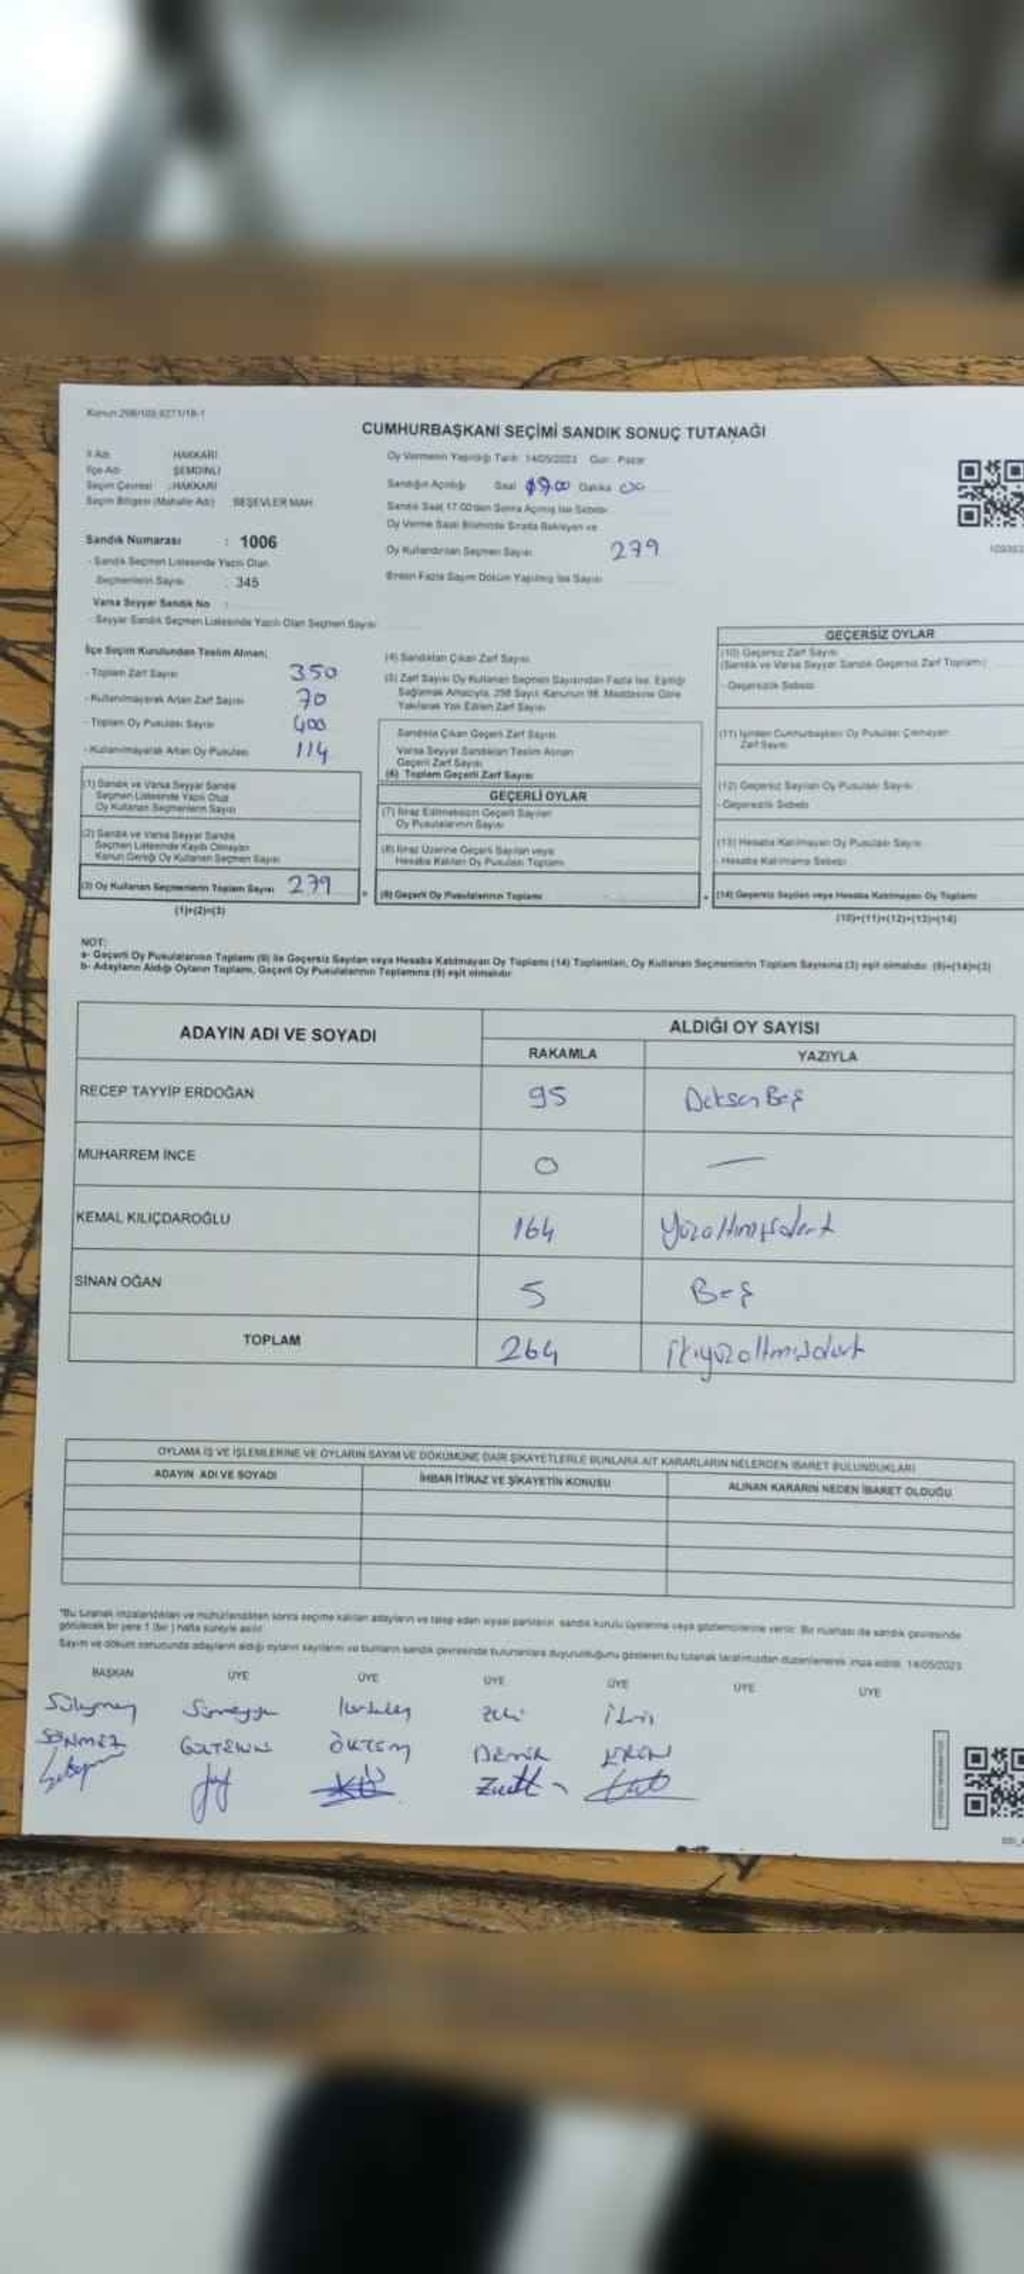 Kanun:298/103,6271/18-1
CUMHURBAŞKANI SEÇİMİ SANDIK SONUÇ TUTANAĞI
İl Adı : HAKKARİ
İlçe Adı : ŞEMDİNLİ
Seçim Çevresi : HAKKARİ
Seçim Bölgesi (Mahalle Adı) : BEŞEVLER MAH.
Oy Vermenin Yapıldığı Tarih: 14/05/2023 Gün: Pazar
Sandığın Açıldığı Saat 19.00 Dakika 00
Sandık Saat 17.00'den Sonra Açılmış İse Sebebi
Oy Verme Saati Bitiminde Sırada Bekleyen ve
Oy Kullandırılan Seçmen Sayısı 279
Birden Fazla Sayım Döküm Yapılmış İse Sayısı
Sandık Numarası : 1006
- Sandık Seçmen Listesinde Yazılı Olan
Seçmenlerin Sayısı : 345
Varsa Seyyar Sandık No :
- Seyyar Sandık Seçmen Listesinde Yazılı Olan Seçmen Sayısı
İlçe Seçim Kurulundan Teslim Alınan;
- Toplam Zarf Sayısı 350
- Kullanılmayarak Artan Zarf Sayısı 70
- Toplam Oy Pusulası Sayısı 400
- Kullanılmayarak Artan Oy Pusulası 114
(1) Sandık ve Varsa Seyyar Sandık
Seçmen Listesinde Yazılı Olup
Oy Kullanan Seçmenlerin Sayısı
(2) Sandık ve Varsa Seyyar Sandık
Seçmen Listesinde Kayıtlı Olmayan
Kanun Gereği Oy Kullanan Seçmen Sayısı
(3) Oy Kullanan Seçmenlerin Toplam Sayısı 279
(1)+(2)=(3)
(4) Sandıktan Çıkan Zarf Sayısı
(5) Zarf Sayısı Oy Kullanan Seçmen Sayısından Fazla İse, Eşitliği
Sağlamak Amacıyla, 298 Sayılı Kanunun 98. Maddesine Göre
Yakılarak Yok Edilen Zarf Sayısı
Sandıkta Çıkan Geçerli Zarf Sayısı
Varsa Seyyar Sandıktan Teslim Alınan
Geçerli Zarf Sayısı
(6) Toplam Geçerli Zarf Sayısı
GEÇERLİ OYLAR
(7) İtiraz Edilmeksizin Geçerli Sayılan
Oy Pusulalarının Sayısı
(8) İtiraz Üzerine Geçerli Sayılan veya
Hesaba Katılan Oy Pusulası Toplamı
(9) Geçerli Oy Pusulalarının Toplamı
GEÇERSİZ OYLAR
(10) Geçersiz Zarf Sayısı
(Sandık ve Varsa Seyyar Sandık Geçersiz Zarf Toplamı)
- Geçersizlik Sebebi
(11) İçinden Cumhurbaşkanı Oy Pusulası Çıkmayan
Zarf Sayısı
(12) Geçersiz Sayılan Oy Pusulası Sayısı
- Geçersizlik Sebebi
(13) Hesaba Katılmayan Oy Pusulası Sayısı
- Hesaba Katılmama Sebebi
(14) Geçersiz Sayılan veya Hesaba Katılmayan Oy Toplamı
(10)+(11)+(12)+(13)=(14)
NOT:
a- Geçerli Oy Pusulalarının Toplamı (9) ile Geçersiz Sayılan veya Hesaba Katılmayan Oy Toplamı (14) Toplamları, Oy Kullanan Seçmenlerin Toplam Sayısına (3) eşit olmalıdır. (9)+(14)=(3)
b- Adayların Aldığı Oyların Toplamı, Geçerli Oy Pusulalarının Toplamına (9) eşit olmalıdır.
ADAYIN ADI VE SOYADI
ALDIĞI OY SAYISI
RAKAMLA YAZIYLA
RECEP TAYYİP ERDOĞAN 95 Doksan Beş
MUHARREM İNCE 0 —
KEMAL KILIÇDAROĞLU 164 Yüzaltmışdört
SİNAN OĞAN 5 Beş
TOPLAM 264 ikiyüzaltmışdört
OYLAMA İŞ VE İŞLEMLERİNE VE OYLARIN SAYIM VE DÖKÜMÜNE DAİR ŞİKAYETLERLE BUNLARA AİT KARARLARIN NELERDEN İBARET BULUNDUKLARI
ADAYIN ADI VE SOYADI İHBAR İTİRAZ VE ŞİKAYETİN KONUSU ALINAN KARARIN NEDEN İBARET OLDUĞU
*Bu tutanak imzalandıktan ve mühürlendikten sonra seçime katılan adayların ve talep eden siyasi partilerin sandık kurulu üyelerine veya gözlemcilerine verilir. Bir nüshası da sandık çevresinde
görülecek bir yere 1 (bir) hafta süreyle asılır.
Sayım ve döküm sonucunda adayların aldığı oyların sayılarını ve bunların sandık çevresinde bulunanlara duyurulduğunu gösteren bu tutanak tarafımızdan düzenlenerek imza edildi. 14/05/2023
BAŞKAN ÜYE ÜYE ÜYE ÜYE ÜYE ÜYE
Süleyman Sümeyye Zeki
SÖNMEZ ÖKTEM DEMİR